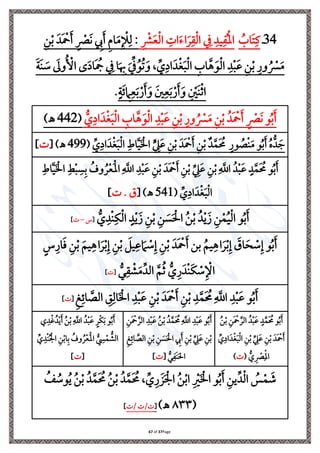 34. كِتَابُ الْمُفِيدِ فِي الْقِرَاءَاتِ الْعَشْرِ : لِلْإِمَامِ أَبِي نَصْرٍ أَحْمَدَ بْنِ
مَسْرُورِ بْنِ عَبْدِ الْوَهَّابِ الْبَغْدَادِيِّ، وَتُوُفِّيَ بِهَا فِي جُمَادَى الْأُولَى سَنَةَ
اثْنَتَيْنِ وَأَرْبَعِينَ وَأَرْبَعِمِائَةٍ.
أَبُو نَصْرٍ أَحْمَدُ بْنِ مَسْرُورِ بْنِ عَبْدِ الْوَهَّابِ الْبَغْدَادِيُّ (442 هـ)
جَدُّهُ أَبُو مَنْصُورٍ مُحَمَّدُ بْنِ أَحْمَدَ بْنِ عَلِيٍّ الْخَيَّاطِ الْبَغْدَادِيِّ (499 هـ) [ت]
أَبُو مُحَمَّدٍ عَبْدُ اللَّهِ بْنِ عَلِيِّ بْنِ أَحْمَدَ بْنِ عَبْدِ اللَّهِ الْمَعْرُوفُ بِسِبْطِ الْخَيَّاطِ
الْبَغْدَادِيِّ (541 هـ) [ق . ت]
أَبُو الْيُمْنِ زَيْدُ بْنُ الْحَسَنِ بْنِ زَيْدٍ الْكِنْدِيُّ [س – ت]
أَبُو إِسْحَاقَ إِبْرَاهِيمُ بن أَحْمَدَ بْنِ إِسْمَاعِيلَ بْنِ إِبْرَاهِيمَ بْنِ فَارِسٍ
الْإِسْكَنْدَرِيُّ ثُمَّ الدِّمَشْقِيُّ [ت]
أَبُو عَبْدِ اللَّهِ مُحَمَّدِ بْنِ أَحْمَدَ بْنِ عَبْدِ الْخَالِقِ الصَّائِغِ [ت]
أَبُو مُحَمَّدٍ عَبْدُ الرَّحْمَنِ بْنُ أَحْمَدَ بْنِ عَلِيِّ بْنِ الْبَغْدَادِيِّ الْمِصْرِيُّ (ت)
أَبُو عَبْدِ اللَّهِ مُحَمَّدُ بْنُ عَبْدِ الرَّحْمَنِ بْنِ عَلِيِّ بْنِ أَبِي الْحَسَنِ بْنِ الصَّائِغِ الْحَنَفِيُّ (ت)
أَبُو بَكْرٍ عَبْدُ اللَّهِ بْنُ أَيْدُغْدِي الشَّمْسِيُّ الْمَعْرُوفُ بِابْنِ الْجُنْدِيِّ [ت]
شَمْسُ الدِّينِ أَبُو الْخَيْرِ ابْنُ الْجَزَرِيِّ، مُحَمَّدُ بْنُ مُحَمَّدُ بْنُ يُوسُفُ
(٨٣٣ هـ) [ت/ ت/ ت]
67 of 37Page